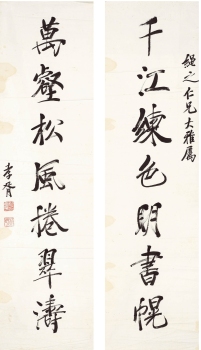 綬之仁兄大雅屬
千江練色明書幌
萬壑松風捲翠濤
李胥